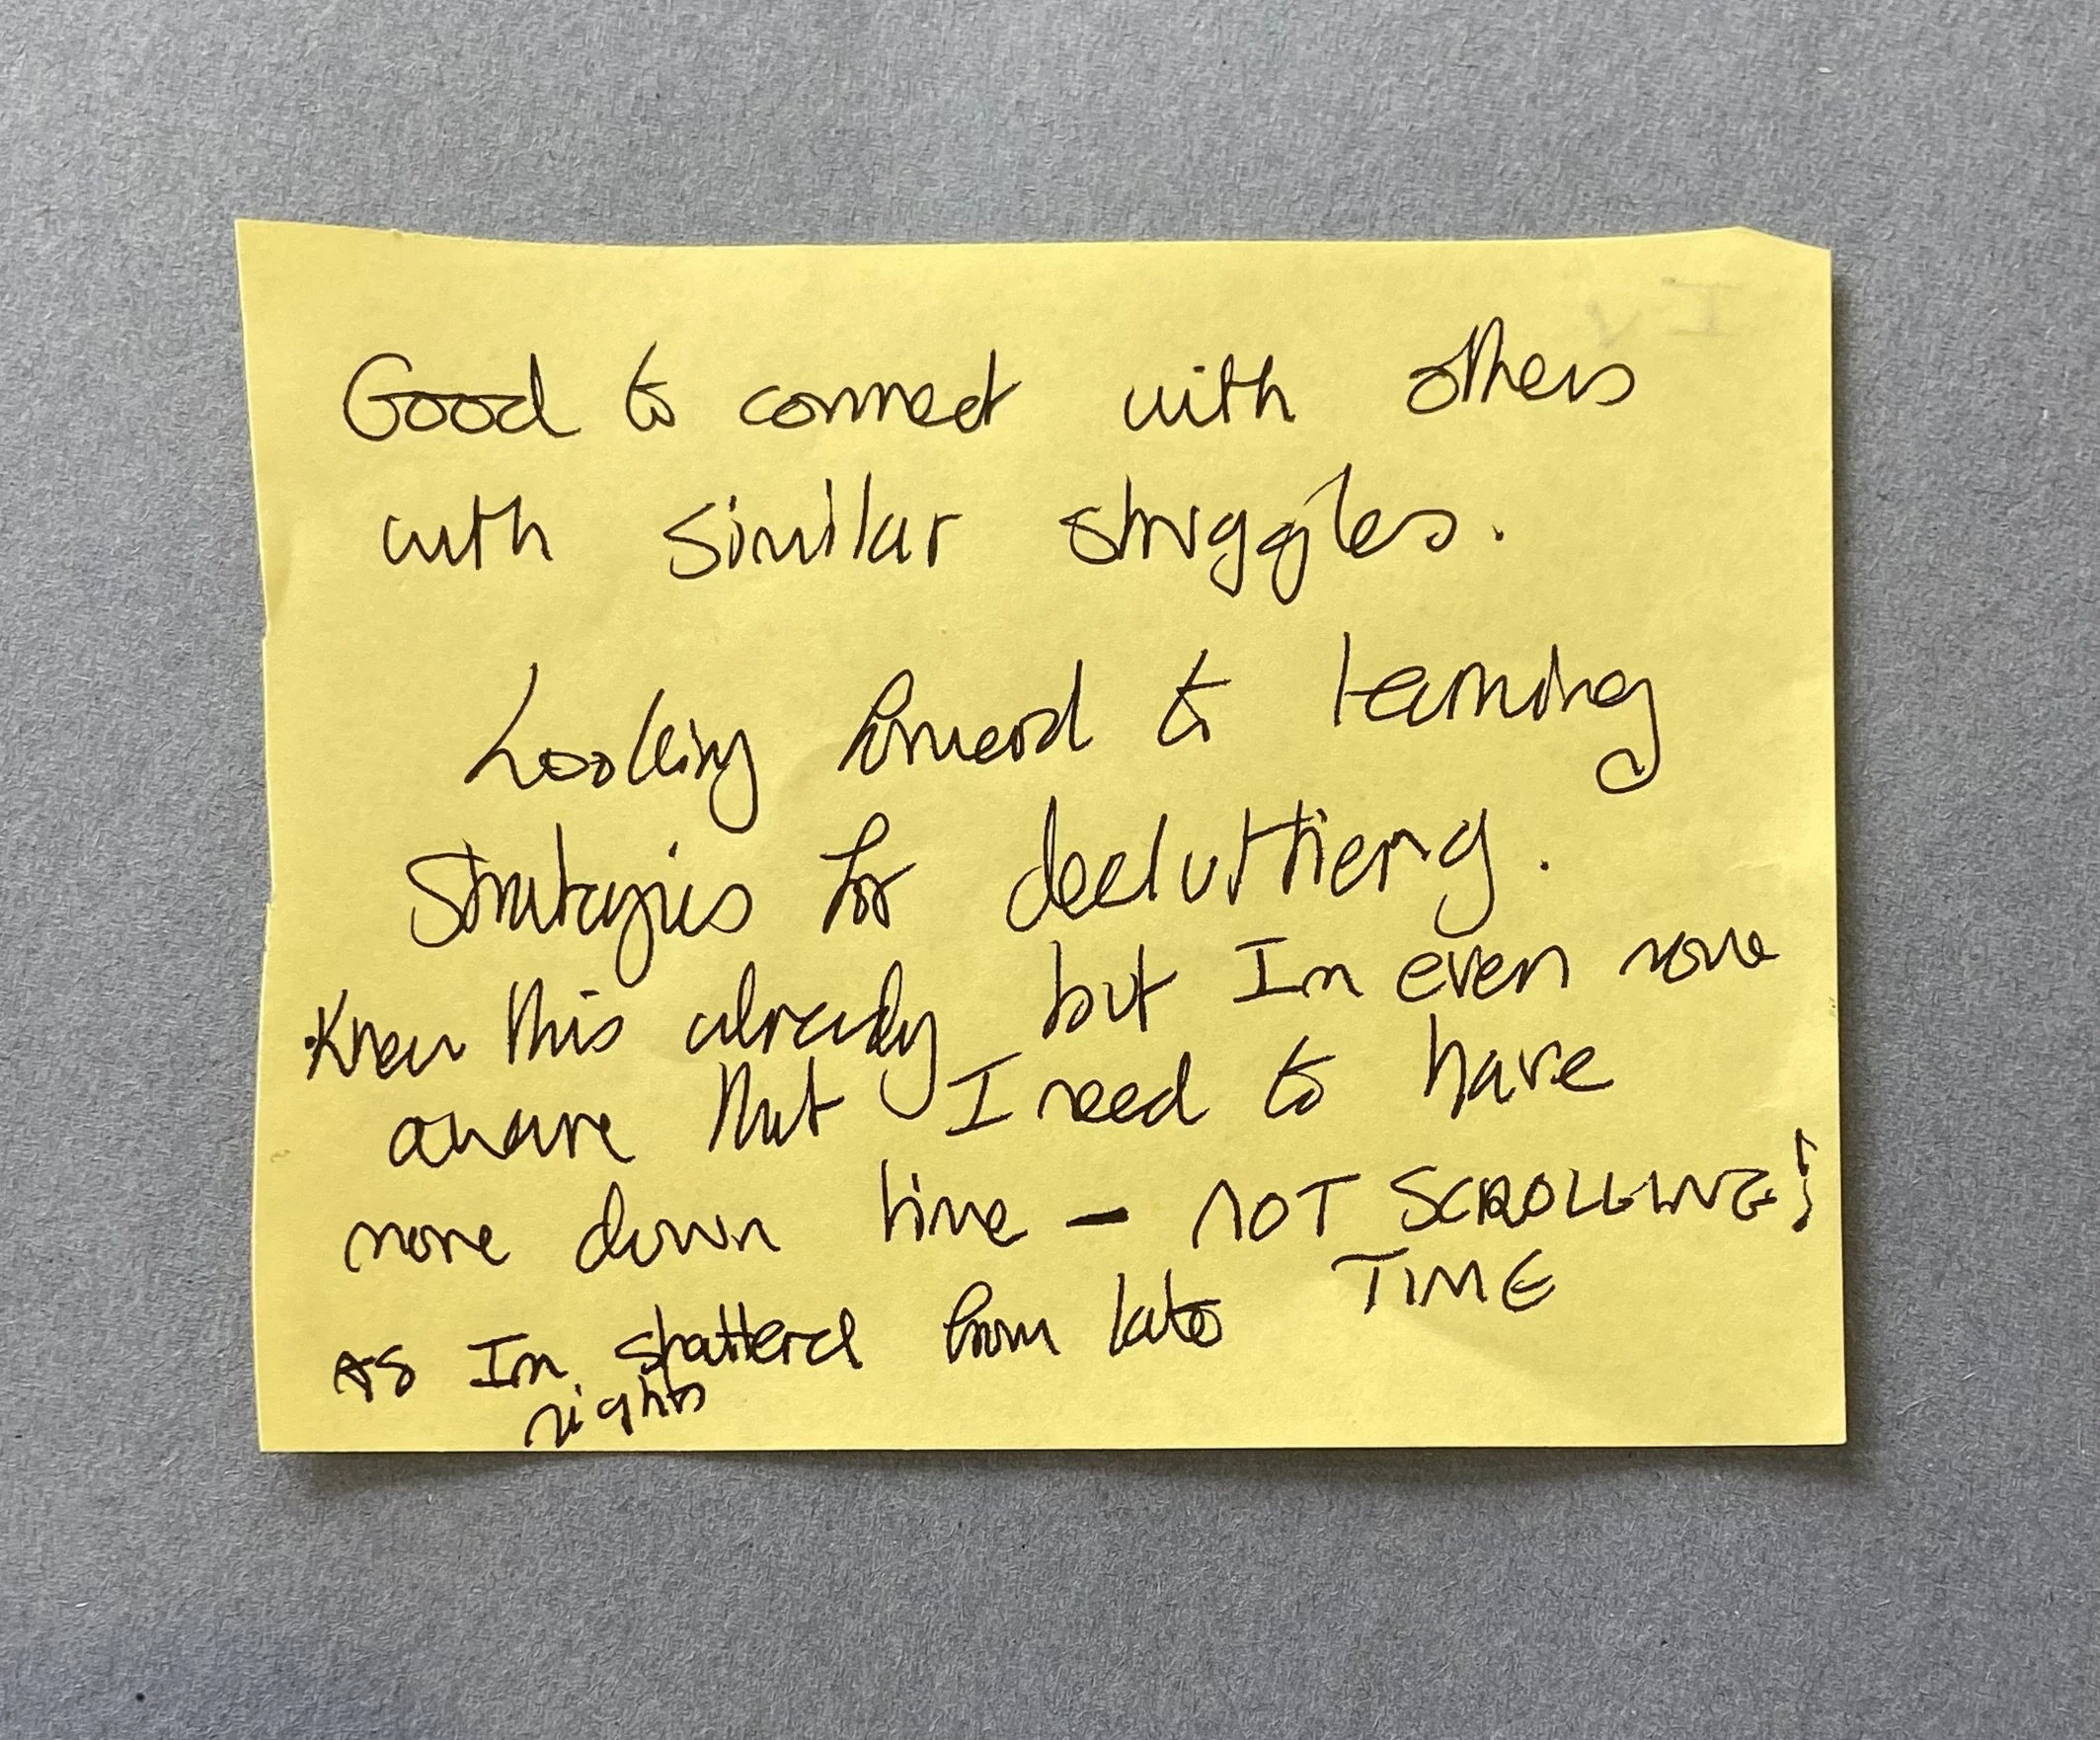 Good to connect with others
with similar struggles.
Looking forward to learning
strategies for decluttering.
Knew this already but Im even more
aware that I need to have
more down time - NOT SCROLLING!
TIME
AS Im shattered from late
nights